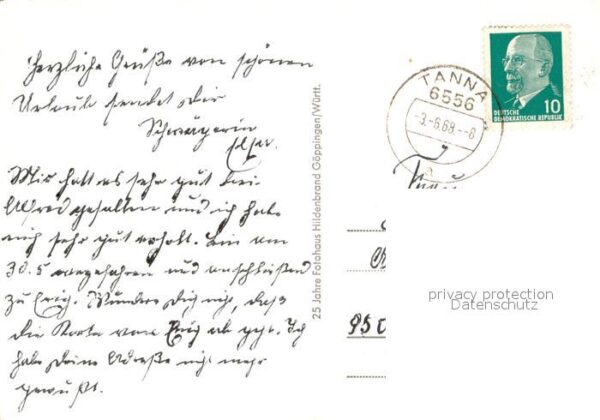 Herzliche Grüße vom schönen
Urlaub sendet Dir
Schwägerin
Elsa.
Mir hat es sehr gut bei
Alfred gefallen und ich habe
mich sehr gut erholt. Bin am
30.5 angefahren und anschließend
zu Erig. Wundere Dich nicht, daß
die Karte von Erig ab geht. Ich
habe Deine Adresse nicht mehr
gewußt.
25 Jahre Fotohaus Hildenbrand Göppingen/Württ.
TANNA
6556
-3.-6.68.--8
10
DEUTSCHE
DEMOKRATISCHE REPUBLIK
privacy protection
Datenschutz
95